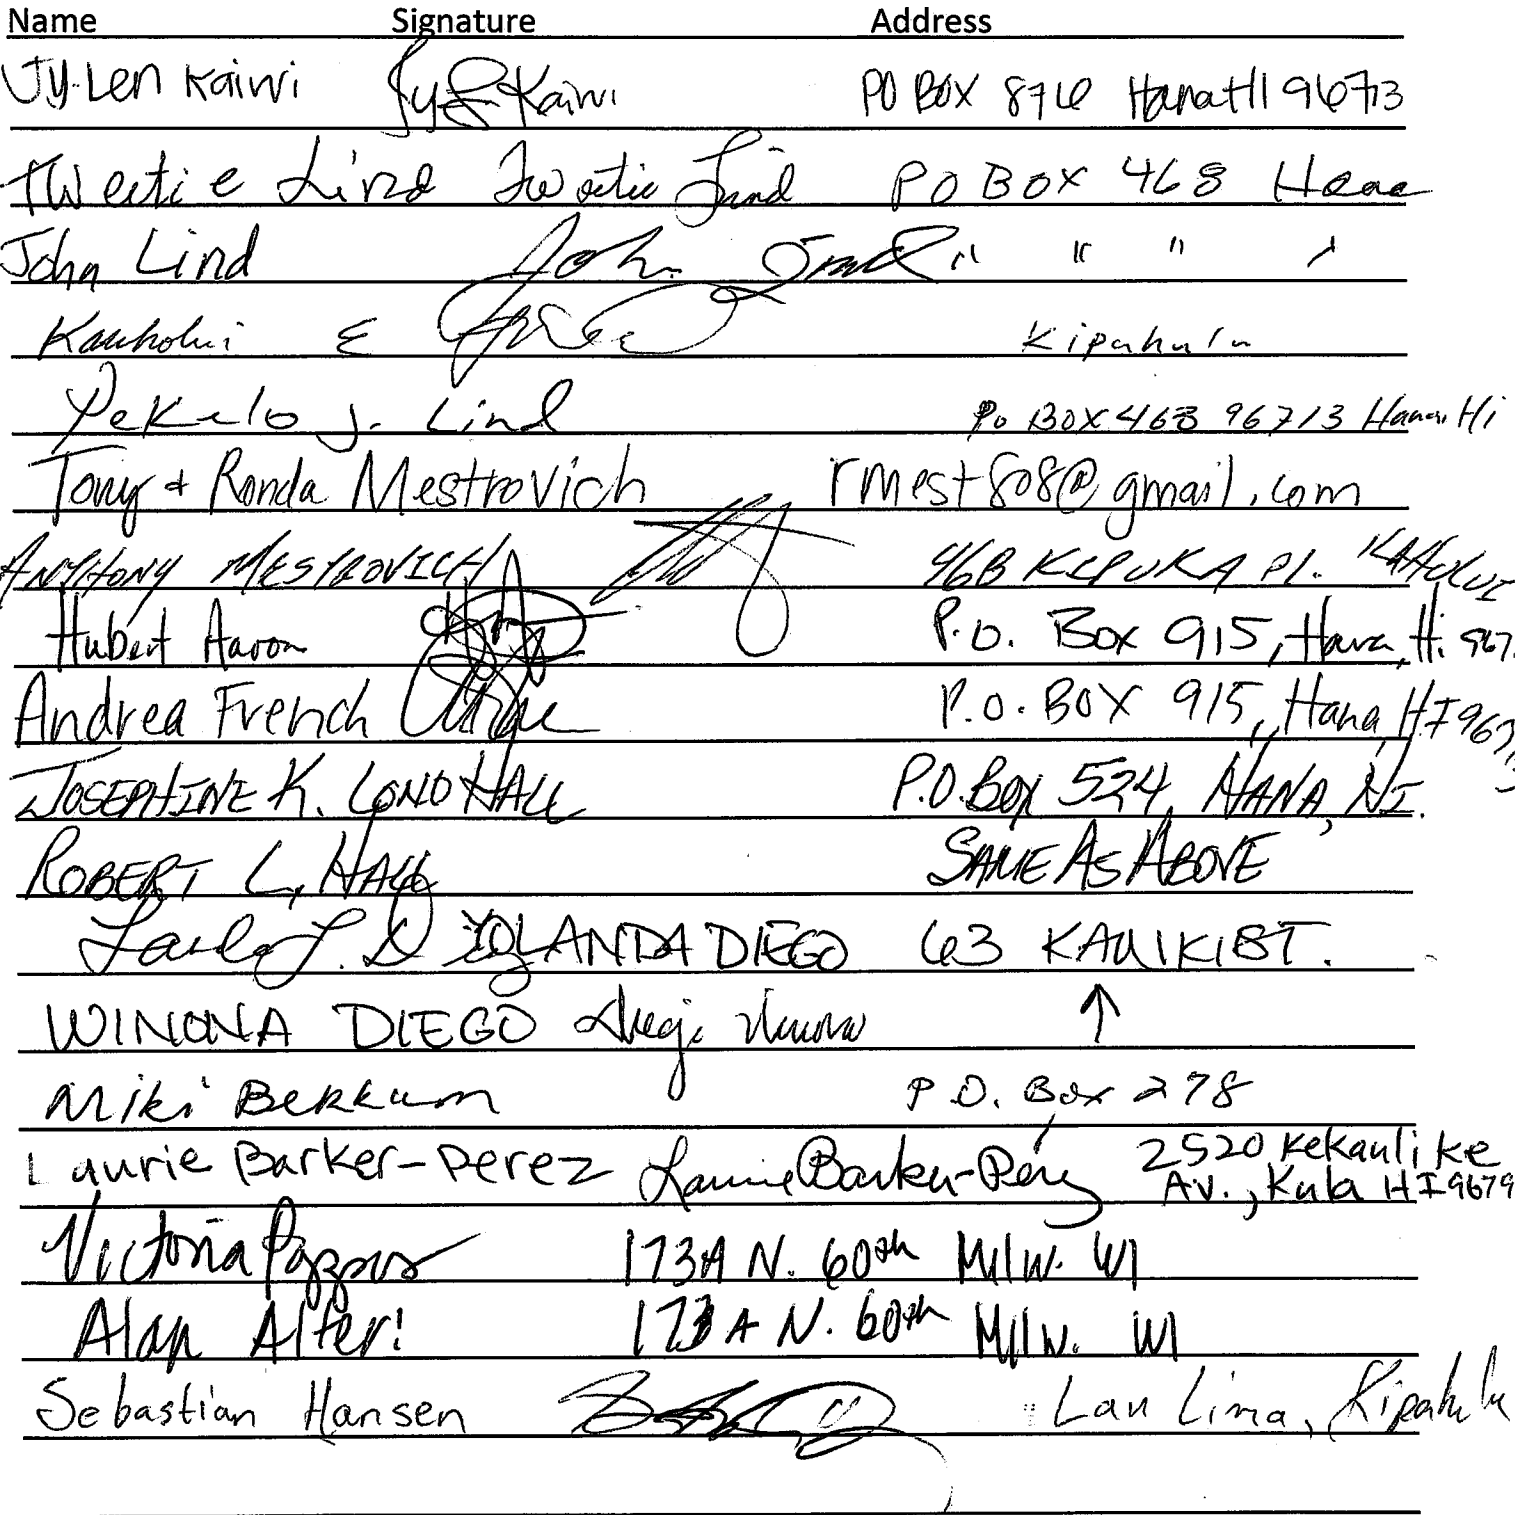 Name Signature Address
Jy-Len Kaiwi Jy L Kaiwi PO BOX 876 Hana HI 96713
Tweetie Lind Tweetie Lind PO BOX 468 Hana
John Lind John Lind " " " "
Kauholui E Kipahulu
Pekelo J. Lind Po BOX 468 96713 Hana Hi
Tony + Ronda Mestrovich rmest808@gmail.com
ANTHONY MESTROVICH 46B KIPUKA Pl. KAHULUI
Hubert Aaron P.O. Box 915, Hana, Hi. 967
Andrea French P.O. BOX 915, Hana, HI 96713
JOSEPHINE K. LONO HALL P.O. BOX 524, HANA, HI.
ROBERT L. HALL SAME AS ABOVE
YOLANDA DIEGO 63 KAUIKI ST.
WINONA DIEGO Diego Winona ↑
Miki Bekkum P.O. Box 278
Laurie Barker-Perez Laurie Barker-Pérez 2520 Kekaulike
Av., Kula HI 9679
Victoria 173A N. 60th Milw. WI
Alan Alter! 173A N. 60th Milw. WI
Sebastian Hansen Lau Lima, Kipahulu